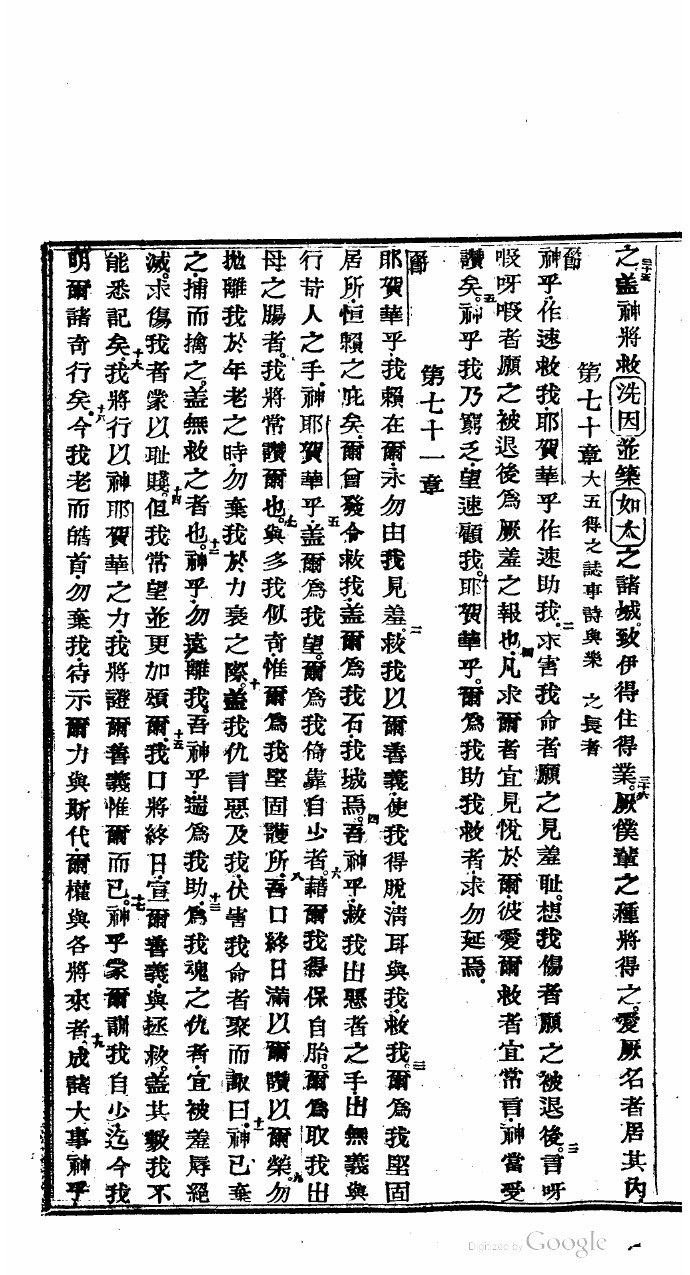 之三十五蓋神將救洗因並築如大之諸城致伊得住得業三十六厥僕輩之種將得之愛厥名者居其內
第七十章大五得之誌事詩與樂 之長者
節神乎作速救我耶賀華乎作速助我二求害我命者願之見羞耻想我傷者願之被退後三言呀
嘏呀嘏者願之被退後爲厥羞之報也四凡求爾者宜見悅於爾彼愛爾救者宜常言神當愛
讚矣五神乎我乃窮乏望速顧我耶賀華乎爾爲我助我救者求勿延焉
第七十一章
節耶賀華乎我賴在爾永勿由我見羞二救我以爾善義使我得脫淸耳與我救我三爾爲我堅固
居所恒賴之庇矣爾曾發令救我蓋爾爲我石我城焉四吾神乎救我出惡者之手出無義與
行苛人之手五神耶賀華乎蓋爾爲我望爾爲我倚靠自少者六藉爾我得保自胎爾爲取我出
母之腸者我將常讚爾也七與多我似奇惟爾爲我堅固護所八吾口終日滿以爾讚以爾榮九勿
拋離我於年老之時勿棄我於力衰之際十蓋我仇言惡及我伏害我命者聚而諏曰十一神已棄
之捕而擒之蓋無救之者也十二神乎勿遠離我吾神乎遄爲我助十三爲我魂之仇者宜被羞辱絕
滅求傷我者蒙以耻賤十四但我常望並更加頌爾十五我口將終日宣爾善義與拯救蓋其數我不
能悉記矣十六我將行以神耶賀華之力我將證爾善義惟爾而已十七神乎蒙爾訓我自少迄今我
明爾諸奇行矣十八今我老而皓首勿棄我待示爾力與斯代爾權與各將來者十九成諸大事神乎
Digitized by Google